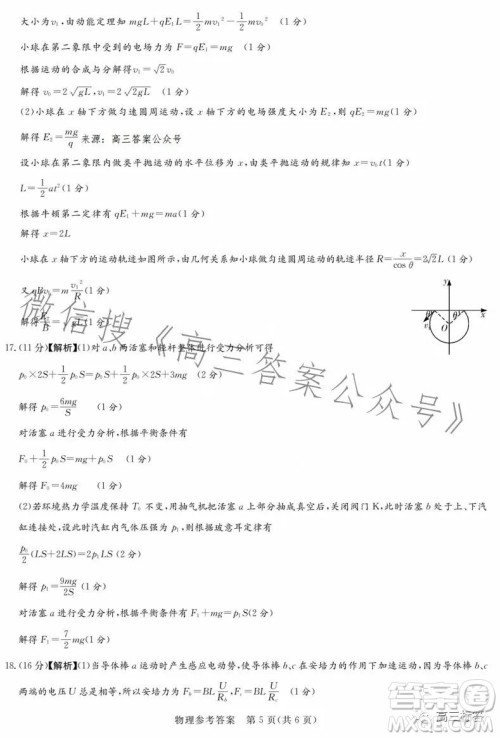 大小为v₁,由动能定理知 mgL+qE₁L=1/2mv₁²-1/2mv₀² (1分)
小球在第二象限中受到的电场力为 F=qE₁=mg (1分)
根据运动的合成与分解得 v₁=√2v₀
解得 v₀=2√gL, v₁=2√2gL (1分)
(2)小球在x轴下方做匀速圆周运动,设x轴下方的电场强度大小为E₂,则 qE₂=mg(1分)
解得 E₂=mg/q 来源:高三答案公众号
设小球在第二象限内做类平抛运动的水平位移为x,由类平抛运动规律知 x=v₀t(1分)
L=1/2at²(1分)
根据牛顿第二定律有 qE₁+mg=ma(1分)
解得 x=2L
小球在x轴下方的运动轨迹如图所示,由几何关系知小球做匀速圆周运动的轨迹半径 R=x/cosθ=2√2L(1分)
又
(1分)
y
x
θ
θ
O
v₁
17.(11分)【解析】(1)对a、b两活塞和
整体进行受力分析可得
p₀×2S+1/2p₀S=p₀S+1/2p₀×2S+3mg (2分)
解得 p₀=6mg/S (1分)
对活塞a进行受力分析,根据平衡条件有
F₀+1/2p₀S=mg+p₀S(1分)
解得 F₀=4mg (1分)
(2)若环境热力学温度保持T₀不变,用抽气机把活塞a上部分抽成真空,打开阀门K,此时活塞b处于上、下汽
缸连接处,设此时汽缸内气体压强为p₁,则根据玻意耳定律有
p₀/2(LS+2LS)=2p₁LS(2分)
解得 p₁=9mg/2S(1分)
对活塞a进行受力分析,根据平衡条件有 F₁+mg=p₁S(2分)
解得 F₁=7/2mg(1分)
18.(16分)【解析】(1)当导体棒a运动时产生感应电动势,使导体棒b、c在安培力的作用下加速运动。导体棒b、c
两端的电压U总是相等,所以安培力为 F_b=BL U/R_b, F_c=BL U/R_c (1分)
物理参考答案 第5页(共6页)
微信搜《高三答案公众号》
高三标答
答案圈